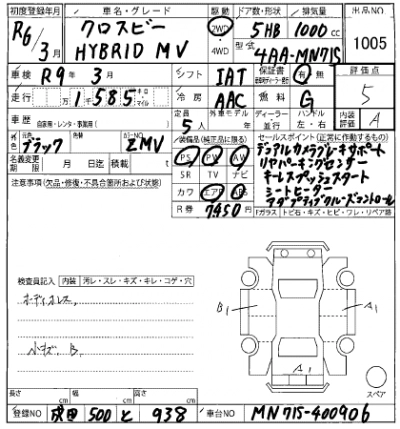 初度登録年月 車名・グレード 駆動 ドア数・形状 排気量 出品NO
R6/3月 クロスビー HYBRID MV 2WD 4WD 5HB 1000cc 1005
型式 4AA-MN71S
車検 R9年3月 シフト IAT 保証書 有・無 評価点 5
走行 1万585 冷房 AAC 燃料 G 内装評価 A
車歴 自家用・レンタ・事業用( ) 定員 5人 ディーラー 並行 ハンドル 左・右
元色 色 ブラック カラーNO ZMV 装備品(純正品に限る) セールスポイント(正常に作動するもの)
名義変更期限 月 日迄 積載 t PS PW AW デュアルカメラブレーキサポート
注意事項(欠品・修復・不具合箇所および状態) SR TV ナビ リヤパーキングセンサー
カワ エアB ABS キーレスプッシュスタート
シートヒーター
R券 7450円 アダプティブクルーズコントロール
Fガラス トビ石・キズ・ヒビ・ワレ・リペア跡
検査員記入 内装 汚レ・スレ・キズ・キレ・コゲ・穴
ボディオスレ、
小キズ、B、
B1 A1
A1
スペア
長さ cm 幅 cm 高さ cm
登録NO 成田 500 と 938 車台NO MN71S-400906